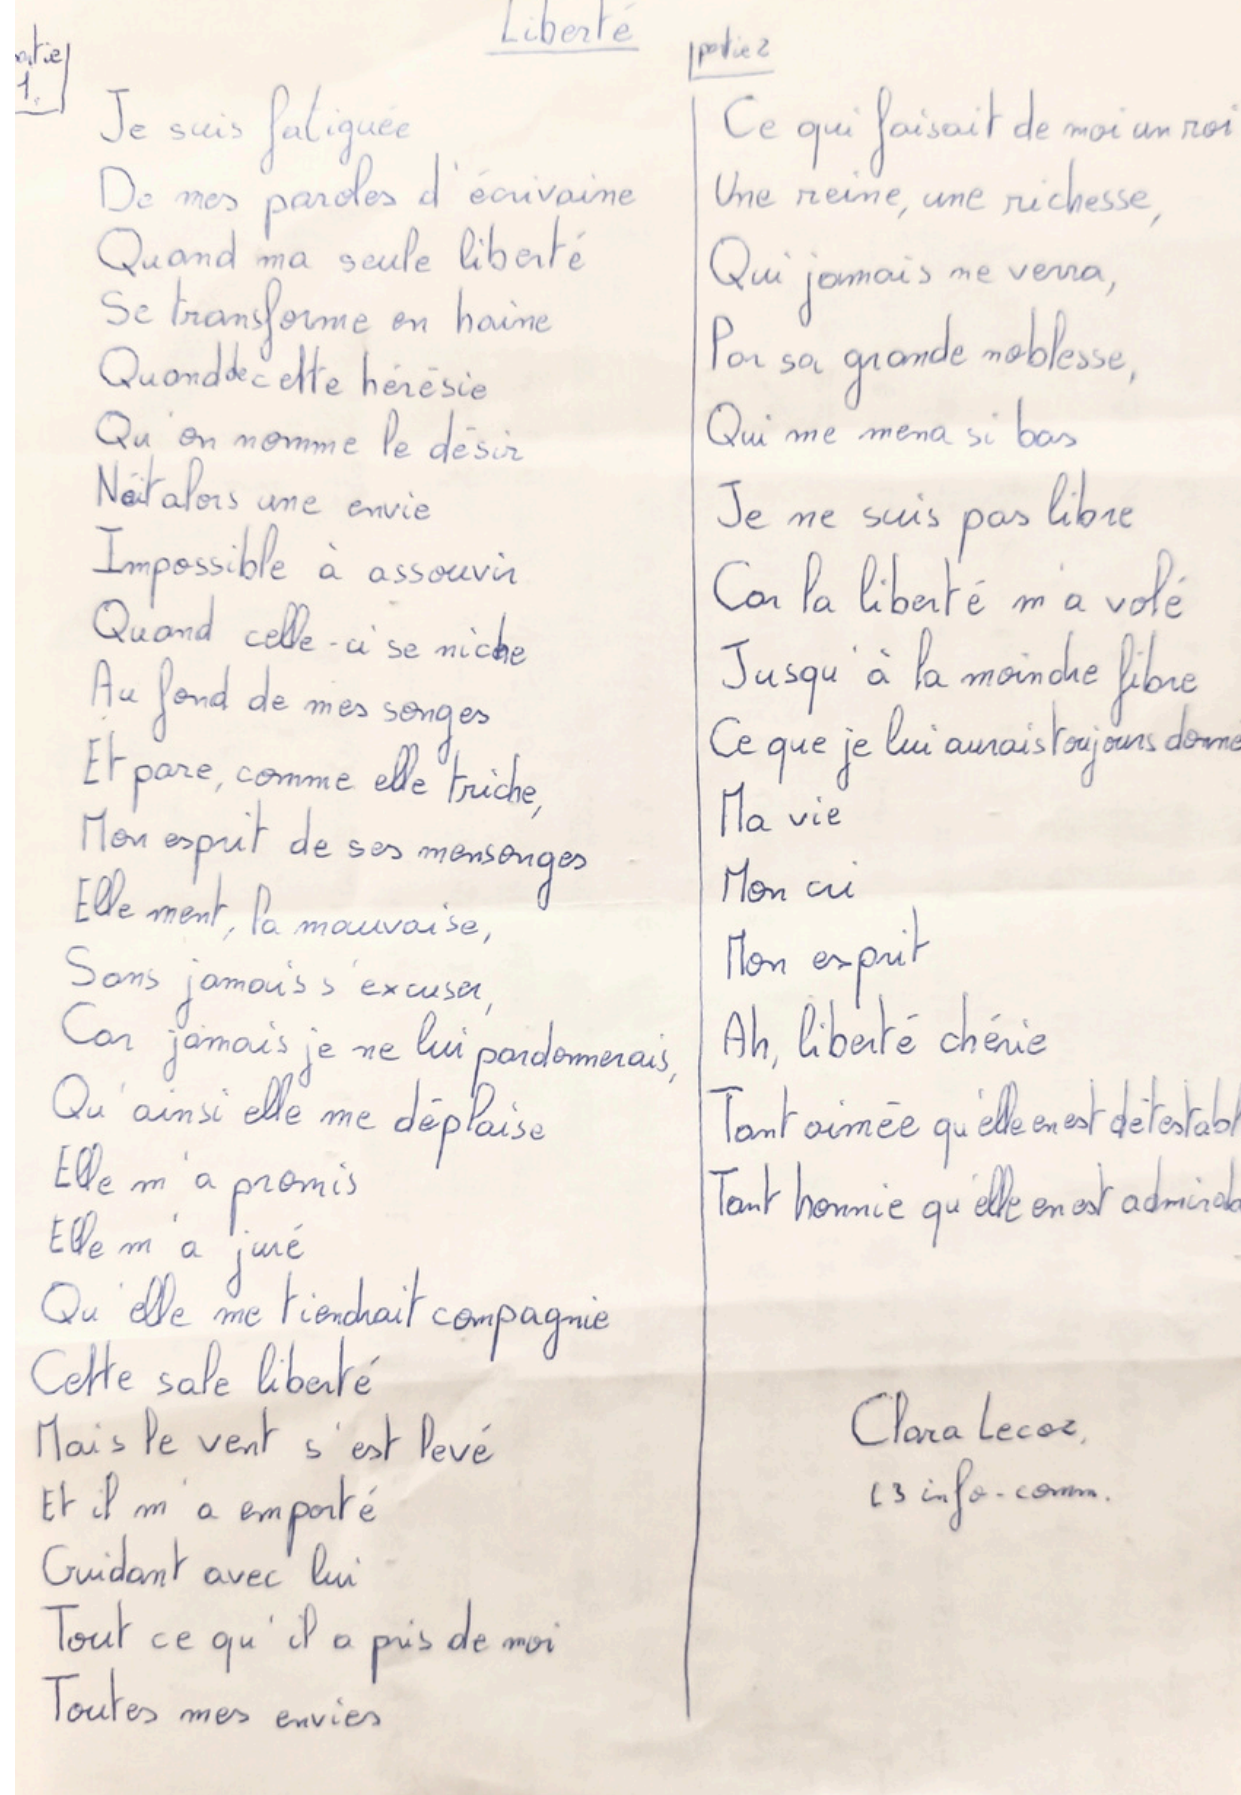 Liberté
partie
1.
Je suis fatiguée
De mes paroles d'écrivaine
Quand ma seule liberté
Se transforme en haine
Quand de cette hérésie
Qu'on nomme le désir
Naît alors une envie
Impossible à assouvir
Quand celle-ci se niche
Au fond de mes songes
Et pare, comme elle triche,
Mon esprit de ses mensonges
Elle ment, la mauvaise,
Sans jamais s'excuser,
Car jamais je ne lui pardonnerais,
Qu'ainsi elle me déplaise
Elle m'a promis
Elle m'a juré
Qu'elle me tiendrait compagnie
Cette sale liberté
Mais le vent s'est levé
Et il m'a emporté
Guidant avec lui
Tout ce qu'il a pris de moi
Toutes mes envies
partie 2
Ce qui faisait de moi un roi
Une reine, une richesse,
Qui jamais ne verra,
Par sa grande noblesse,
Qui me mena si bas
Je ne suis pas libre
Car la liberté m'a volé
Jusqu'à la moindre fibre
Ce que je lui aurais toujours donné
Ma vie
Mon cri
Mon esprit
Ah, liberté chérie
Tant aimée qu'elle en est détestabl
Tant honnie qu'elle en est admirab
Clara Lecoz,
L3 info-comm.